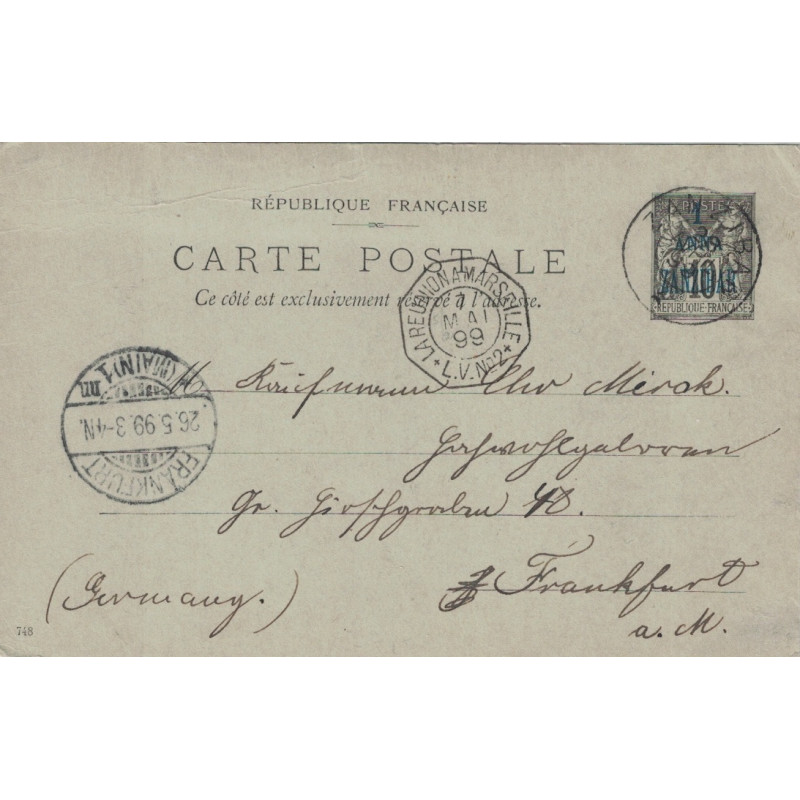 RÉPUBLIQUE FRANÇAISE
CARTE POSTALE
Ce côté est exclusivement réservé à l'adresse.
POSTE
1
ANNA
ZANZIBAR
10
REPUBLIQUE FRANÇAISE
LA REUNION A MARSEILLE
7
MAI
99
L.V. No 2
FRANKFURT (MAIN) 1
26.5.99. 3-4N.
H. Kaufmann Otto Merck.
Hochwohlgeboren
Gr. Hirschgraben
Frankfurt
a. M.
(Germany.)
748